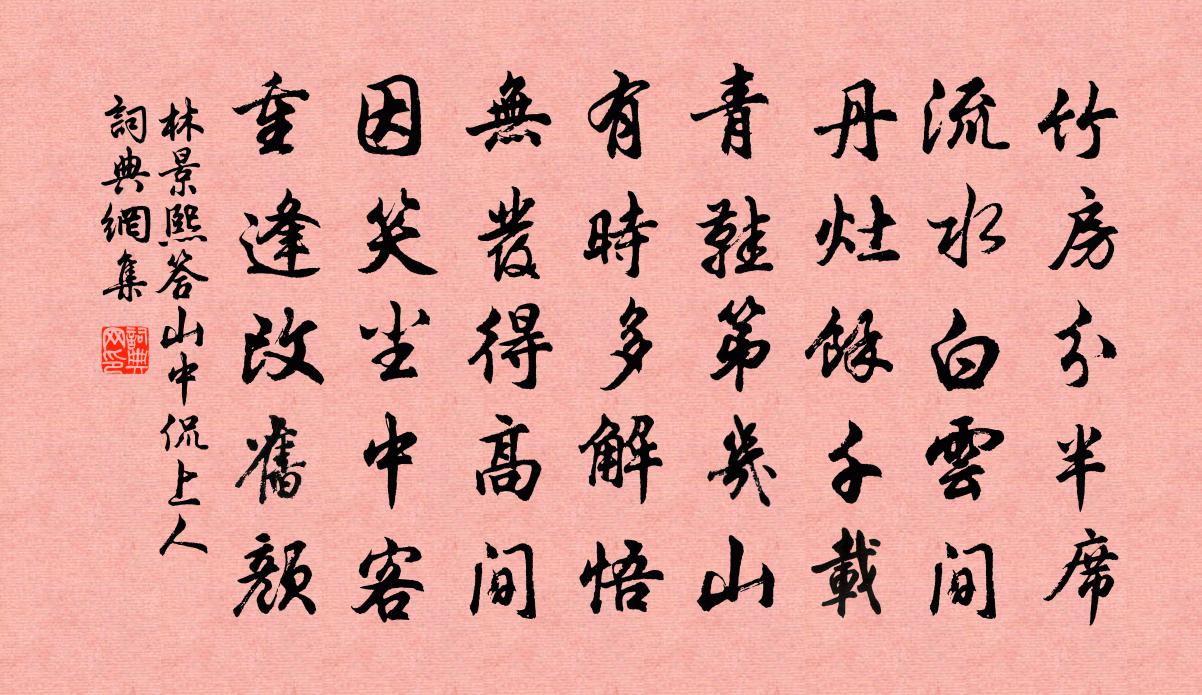 竹房分半席
流水白雲间
丹灶餘千載
青鞋第幾山
有時多解悟
無發得高间
因笑尘中客
重逢改舊顔
林景熙答山中侃上人
詞典網集
詞典网印